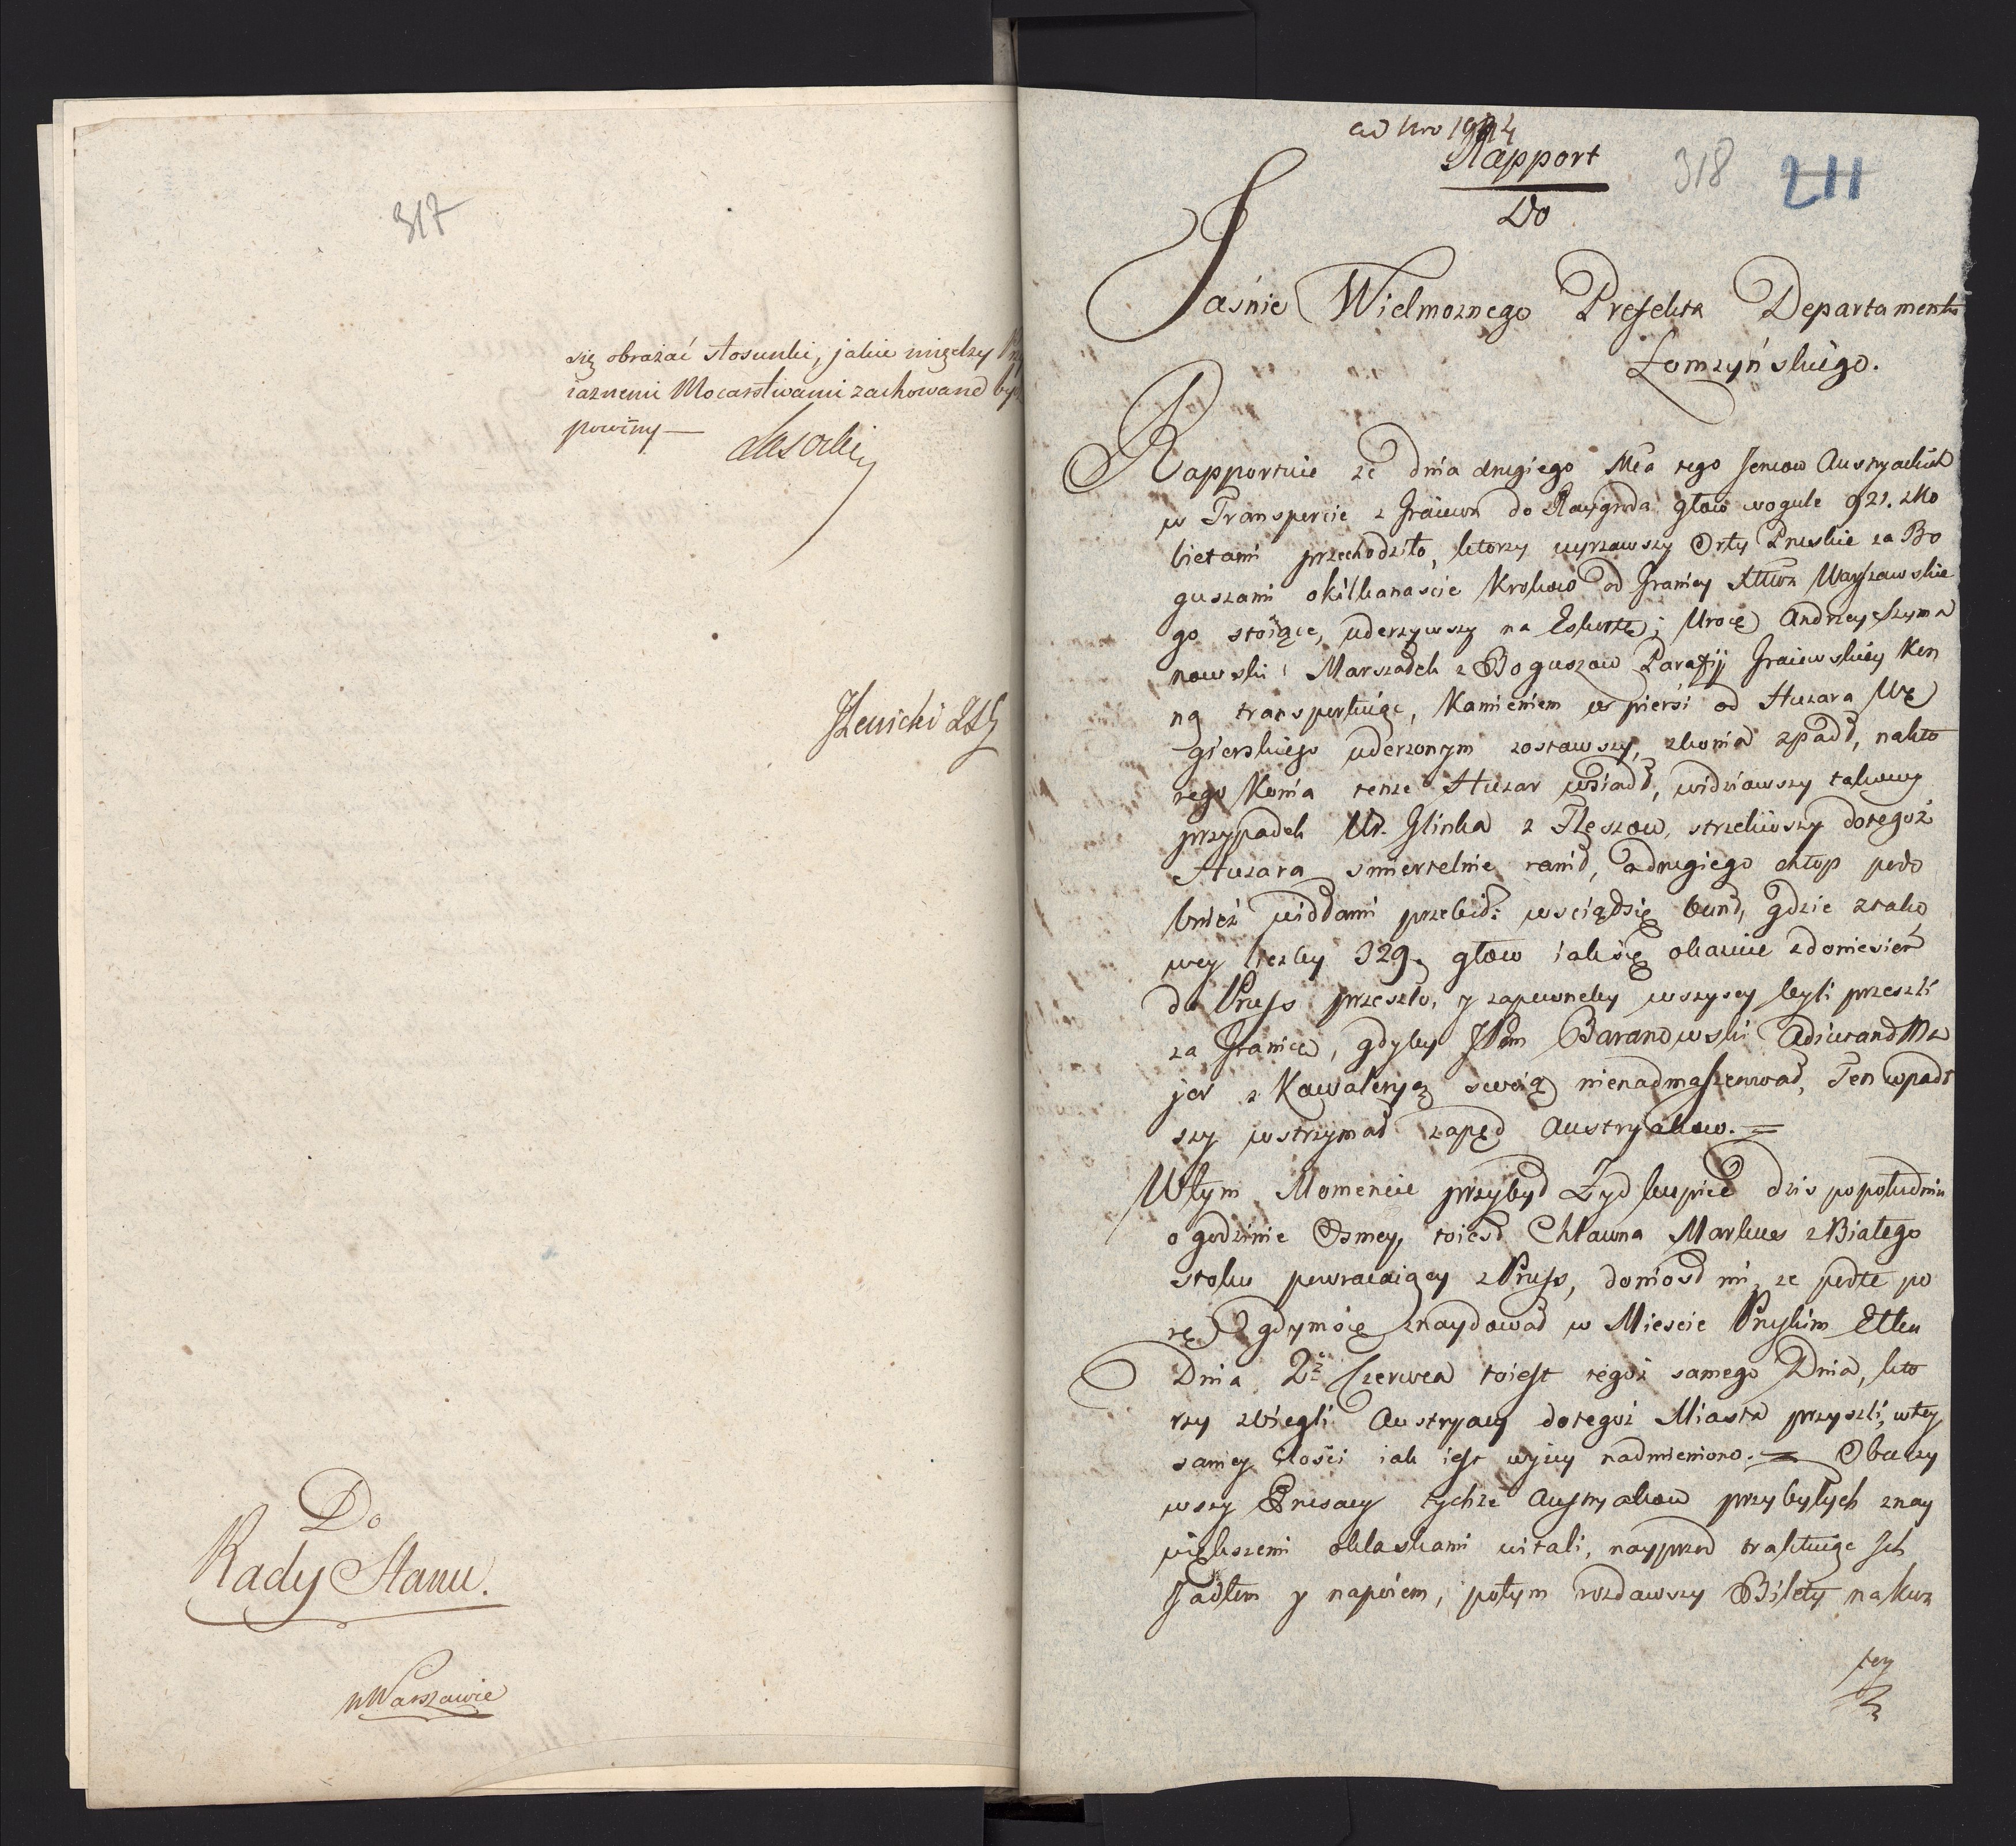 317
się obrażać stosunki, jakie między Przy
iaznemi Mocarstwami zachowane być
powinny —
Lasocki
Do
Rady Stanu.
w Warszawie
ad Nro
Rapport
318
211
Do
Jaśnie Wielmoznego Prefekta Departamentu
Łomzyńskiego.
Rapportuie ze dnia drugiego Mca tego Jencow Austryackich
w Transporcie z Graiewa do Raygroda głow wogule 921. z Ko
bietami przechodziło, ktorzy uyrzawszy Orły Pruskie za Bo
guszami okilkanascie Krokow od Granicy Xtwa Warszawskie
go stoiące, uderzywszy na Eskortę; Uroce Andrzey Szyma
nowski Marszałek z Boguszow Parafij Graiewskiey Kon
ną transportuiąc, Kamieniem w piersi od Huzara Wę
gierskiego uderzonym zostawszy, zkonia zpadł, nakto
rego Konia tenze Huzar wsiadł, widziawszy takowy
przypadek Ur. Glinka z Flęszow, strzeliwszy dotegoż
Huzara smiertelnie ranił, adrugiego chłop podo
bnież widłami przebił: wsciąłsię bunt, gdzie ztako
wey liczby 329. głow iaksię okazuie zdoniesień
do Pruss przeszło, y zapewneby wszyscy byli przeszli
za Granicę, gdyby JPan Baranowski Adiutant Ma
jor z Kawaleryą swoią nienadmaszerował, Ten wpadł
szy wstrzymał zapęd Austryakow. =
Wtym Momencie przybył Żyd kupiec dzis popołudniu
o godzinie Osmey, toiest Chłauna Markus z Białego
stoku powracaiący z Pruss, doniosł mi, ze podte po
rę gdymsię znaydował w Miescie Pruskim Ełku
Dnia 2° Czerwca toiest tegoż samego Dnia, kto
rzy zbiegli Austryacy dotegoż Miasta przyszli, wtey
samey ilości iak iest wyzey nadmieniono. = Obaczy
wszy Prusacy tychze Austryakow przybyłych znay
większemi oklaskami witali, nayprzod traktuiąc Ich
Jadłem y napoiem, potym rozdawszy Bilety nakwa